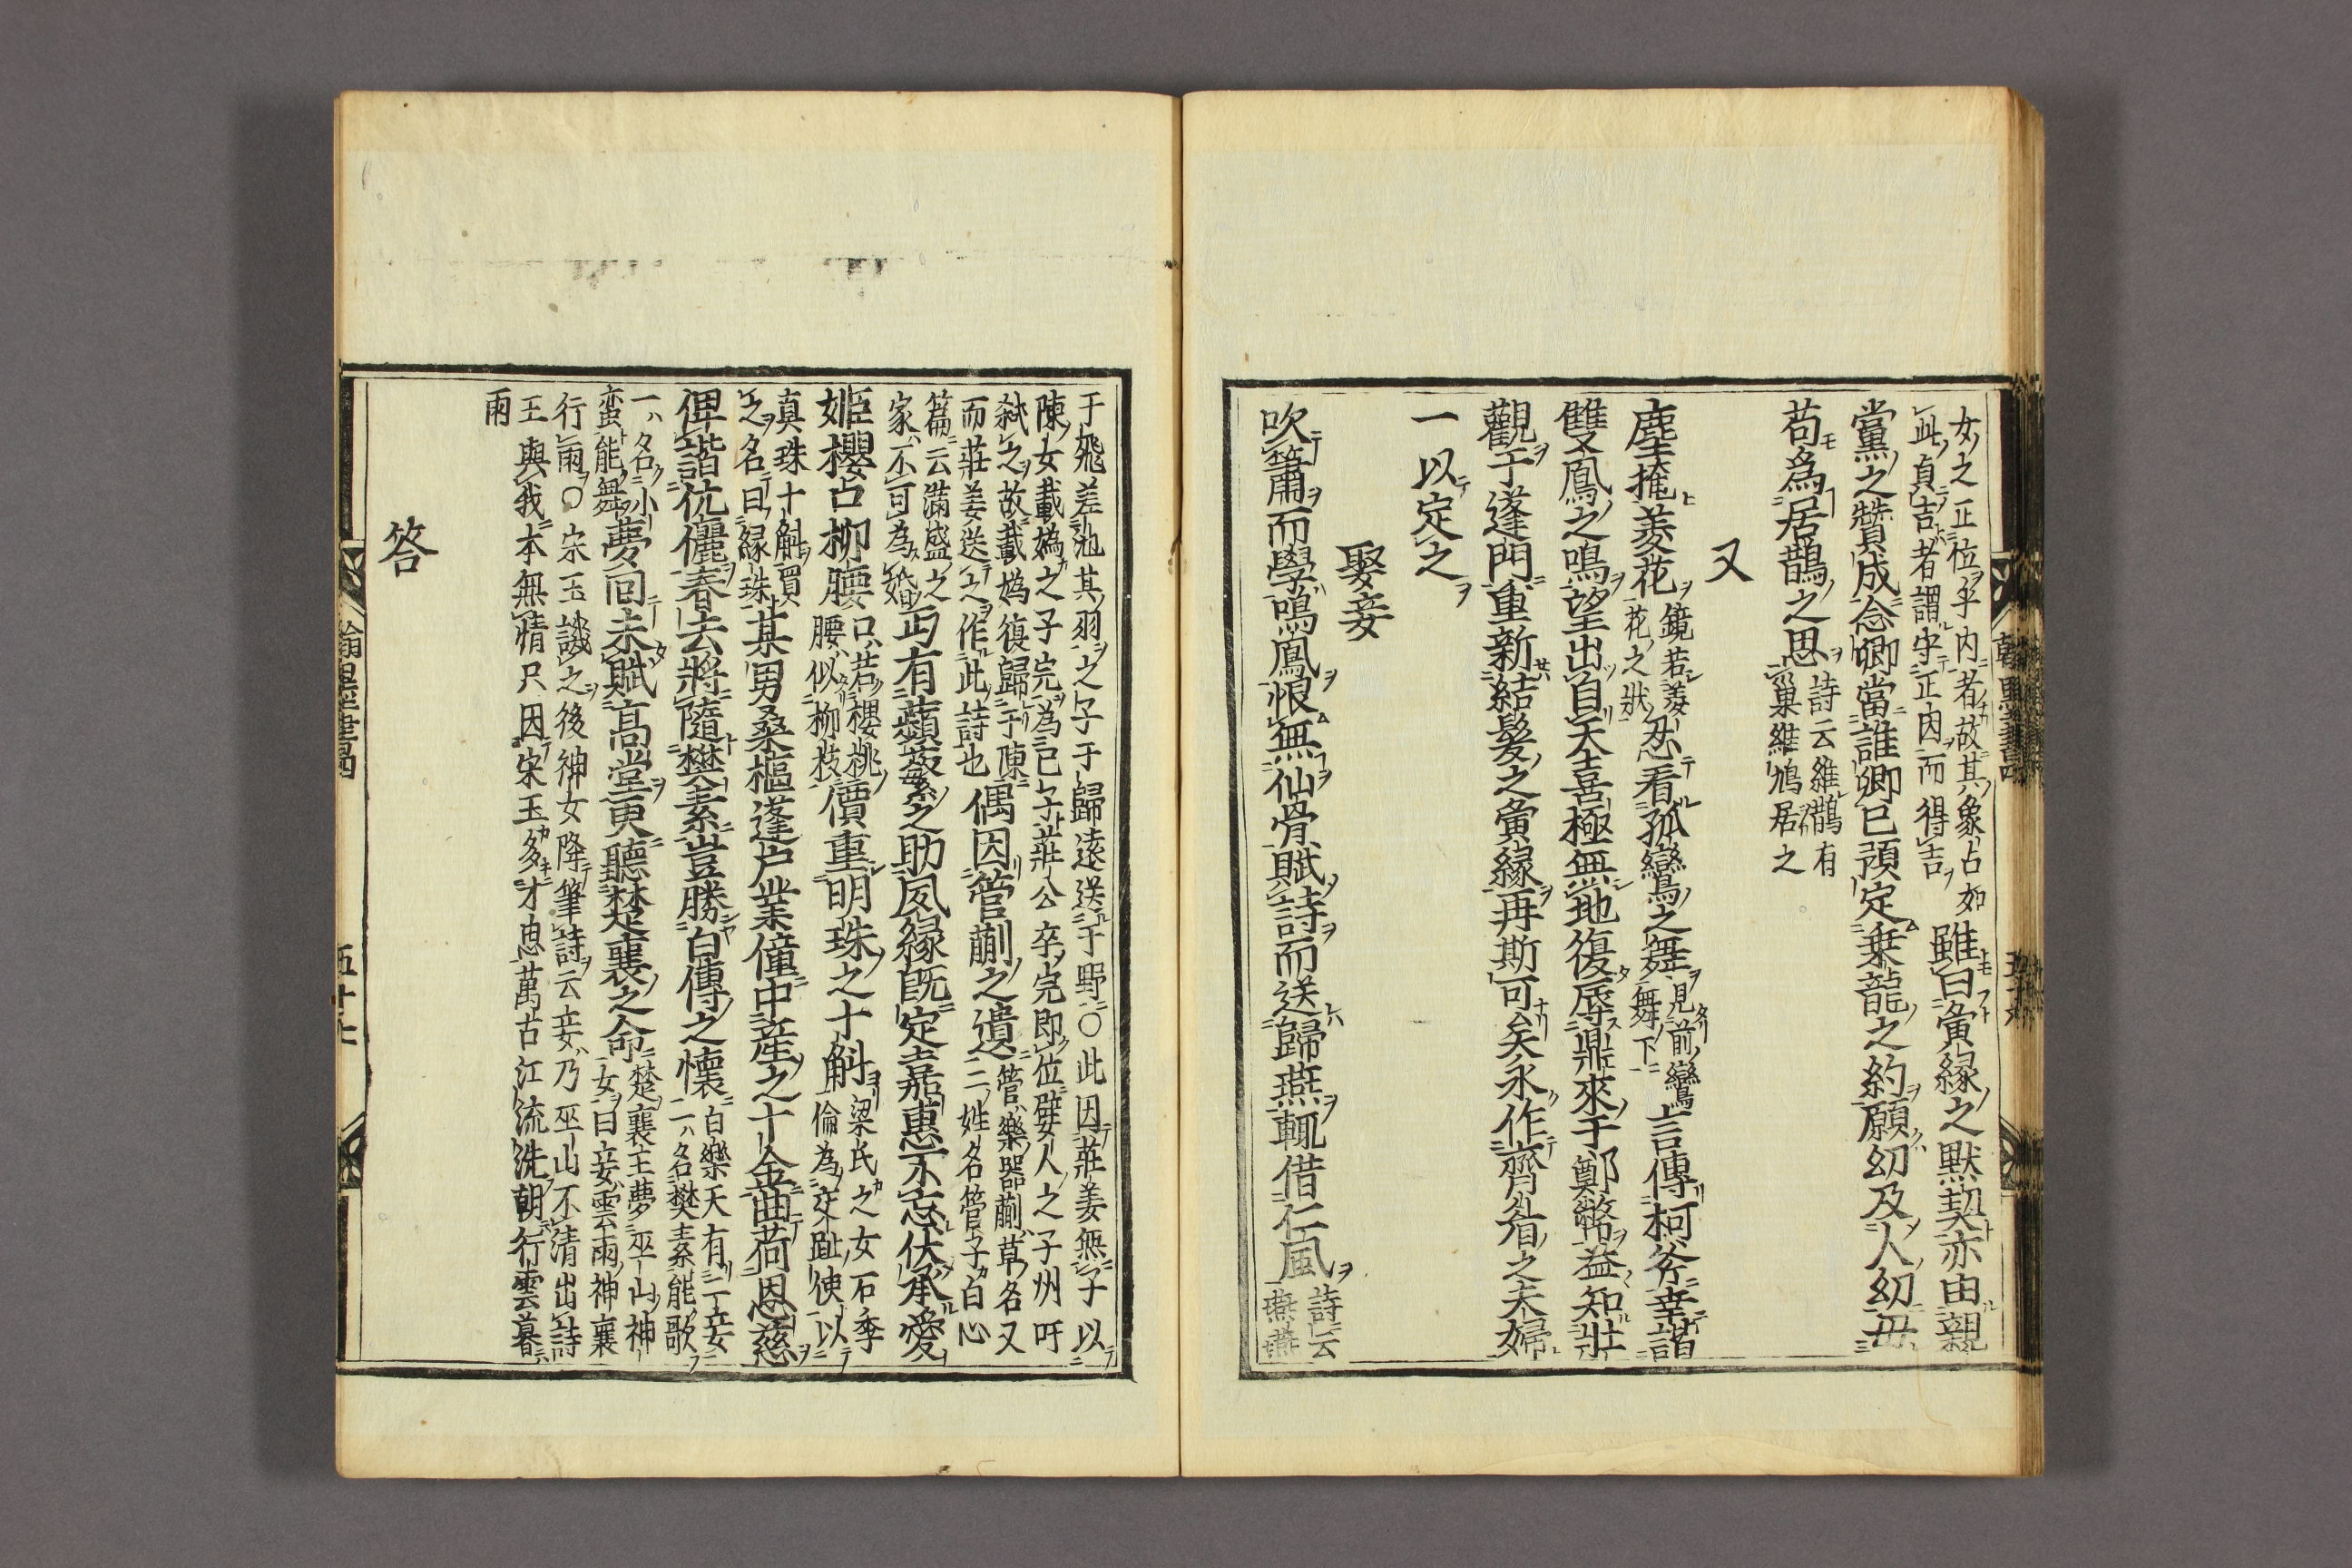 女之正位乎内者故其象占如
此貞吉者謂守正内而得吉
雖曰寅縁之默契亦由親
黨之贊成念卿當誰卿已預定乗龍之約願幼及人幼毋
苟為居鵲之思
詩云維鵲有
巣維鳩居之
又
塵掩菱花
鏡若菱
花之状
忍看孤鸞之舞
見前鸞
舞下
言傳柯斧幸諧
雙鳳之鳴望出自天喜極無地復辱鼎來于鄭幣益知壮
觀于逢門重新結髮之寅縁再斯可矣永作齊眉之夫婦
一以定之
娶妾
吹簫而學鳴鳳恨無仙骨賦詩而送歸燕輒借仁風
詩云
燕燕
于飛差池其羽之子于歸遠送于野〇此因莊姜無子以
陳女戴媯之子完為己子莊公卒完即位嬖人之子州吁
弑之故戴媯復歸于陳
而莊姜送之作此詩也
偶因管蒯之遺
管樂器蒯草名又
二姓名管子白心
篇云滿盛之
家不可為婚
丐有蘋蘩之助夙縁既定嘉惠不忘伏承愛
姫櫻占柳腰
口若櫻桃
腰似柳枝
價重明珠之十斛
梁氏之女石季
倫為交趾使以
真珠十斛買
之名曰緑珠
某男桑樞蓬户業僮中産之十金曲荷恩慈
俾諧伉儷春去將隨樊素豈勝白傳之懷
白樂天有二妾
二名樊素能歌
一名小
蛮能舞
夢回未賦髙堂更聽楚襄之命
楚襄王夢巫山神
女曰妾雲雨神襄
行雨〇宋玉譏之後神女降筆詩云妾乃巫山不清出詩
王與我本無情只因宋玉多才思萬古江流洗朝行雲暮
雨
答
翰墨全書
五十七